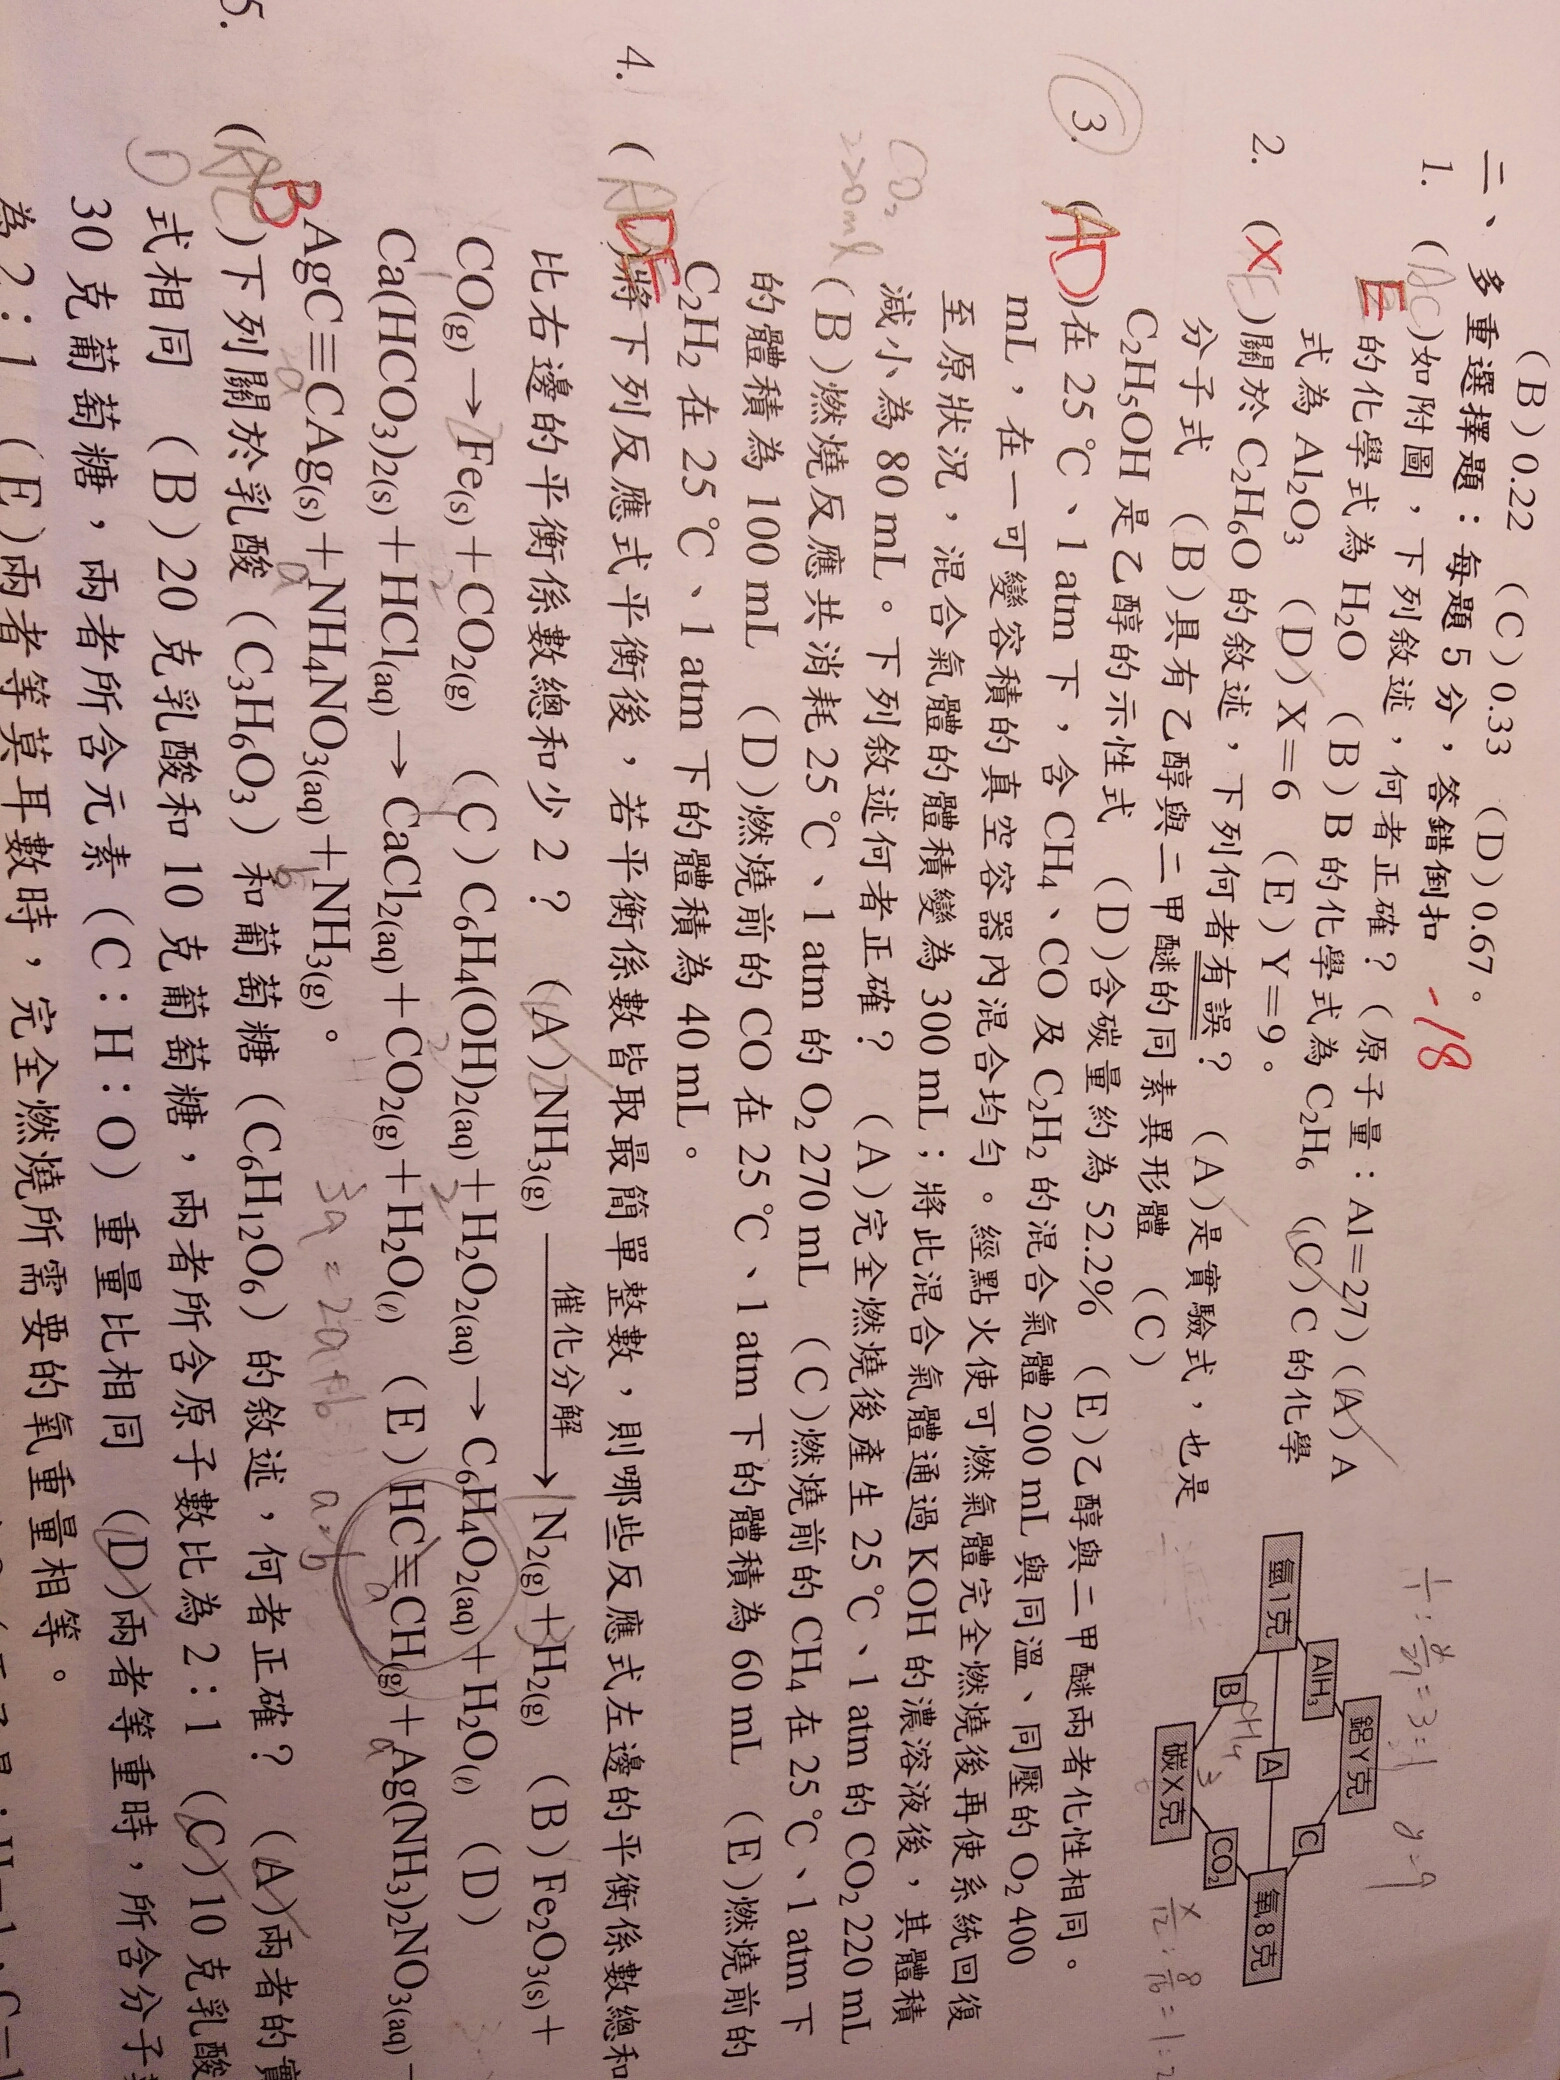 (B)0.22 (C)0.33 (D)0.67。
二、多重選擇題：每題5分，答錯倒扣 -18
1. (AC E)如附圖，下列敘述，何者正確？(原子量：Al=27)(A)A
的化學式為H₂O (B)B的化學式為C₂H₆ (C)C的化學
式為Al₂O₃ (D)X=6 (E)Y=9。
2. (X E)關於C₂H₆O的敘述，下列何者有誤？ (A)是實驗式，也是
分子式 (B)具有乙醇與二甲醚的同素異形體 (C)
C₂H₅OH是乙醇的示性式 (D)含碳量約為52.2% (E)乙醇與二甲醚兩者化性相同。
3. (AD)在25℃、1atm下，含CH₄、CO及C₂H₂的混合氣體200mL與同溫、同壓的O₂400
mL，在一可變容積的真空容器內混合均勻。經點火使可燃氣體完全燃燒後再使系統回復
至原狀況，混合氣體的體積變為300mL；將此混合氣體通過KOH的濃溶液後，其體積
減小為80mL。下列敘述何者正確？ (A)完全燃燒後產生25℃、1atm的CO₂220mL
(B)燃燒反應共消耗25℃、1atm的O₂270mL (C)燃燒前的CH₄在25℃、1atm下
的體積為100mL (D)燃燒前的CO在25℃、1atm下的體積為60mL (E)燃燒前的
C₂H₂在25℃、1atm下的體積為40mL。
CO₂
220ml
4. (A DE)將下列反應式平衡後，若平衡係數皆取最簡單整數，則哪些反應式左邊的平衡係數總和
比右邊的平衡係數總和少2？ (A)NH₃(g) 催化分解→ N₂(g)+H₂(g) (B)Fe₂O₃(s)+
CO(g)→Fe(s)+CO₂(g) (C)C₆H₄(OH)₂(aq)+H₂O₂(aq)→C₆H₄O₂(aq)+H₂O(ℓ) (D)
Ca(HCO₃)₂(s)+HCl(aq)→CaCl₂(aq)+CO₂(g)+H₂O(ℓ) (E)HC≡CH(g)+Ag(NH₃)₂NO₃(aq)→
AgC≡CAg(s)+NH₄NO₃(aq)+NH₃(g)。
3a = 2a+b a=b
5. (B)下列關於乳酸(C₃H₆O₃)和葡萄糖(C₆H₁₂O₆)的敘述，何者正確？ (A)兩者的實
式相同 (B)20克乳酸和10克葡萄糖，兩者所含原子數比為2：1 (C)10克乳酸
30克葡萄糖，兩者所含元素(C：H：O)重量比相同 (D)兩者等重時，所含分子
為2：1 (E)兩者等莫耳數時，完全燃燒所需要的氧重量相等。
氫1克
AlH₃
鋁Y克
A
B
CH₄
3
C
碳X克
CO₂
氧8克
1/1：y/27=3：1 y=9
x/12：8/16=1：2